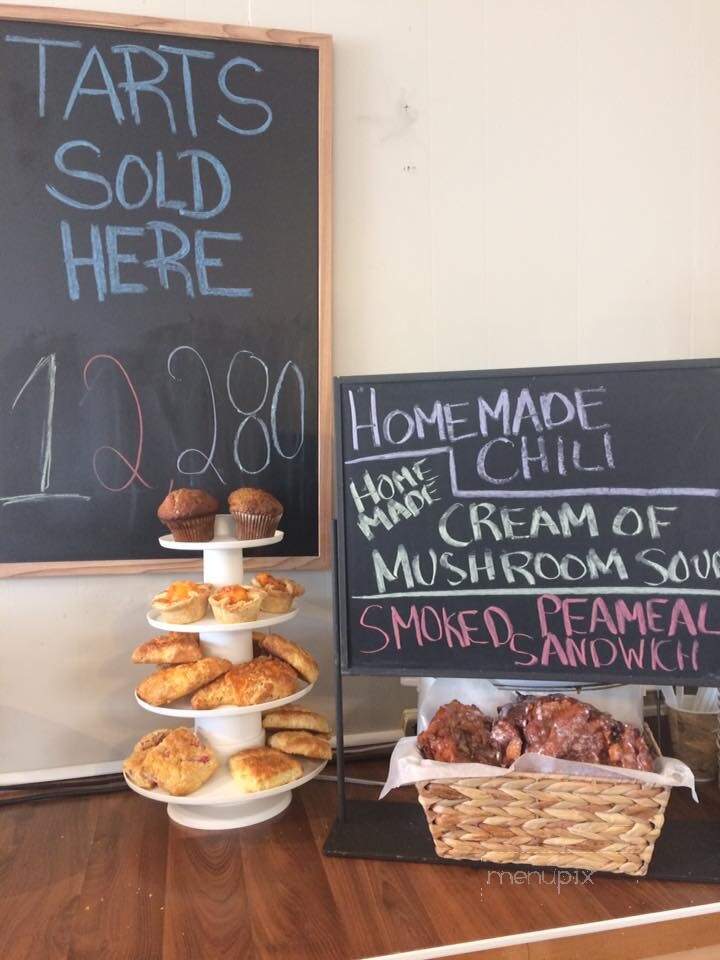 TARTS
SOLD
HERE
12,280
HOMEMADE
CHILI
HOME
MADE
CREAM OF
MUSHROOM SOUP
SMOKED PEAMEAL
SANDWICH
menupix